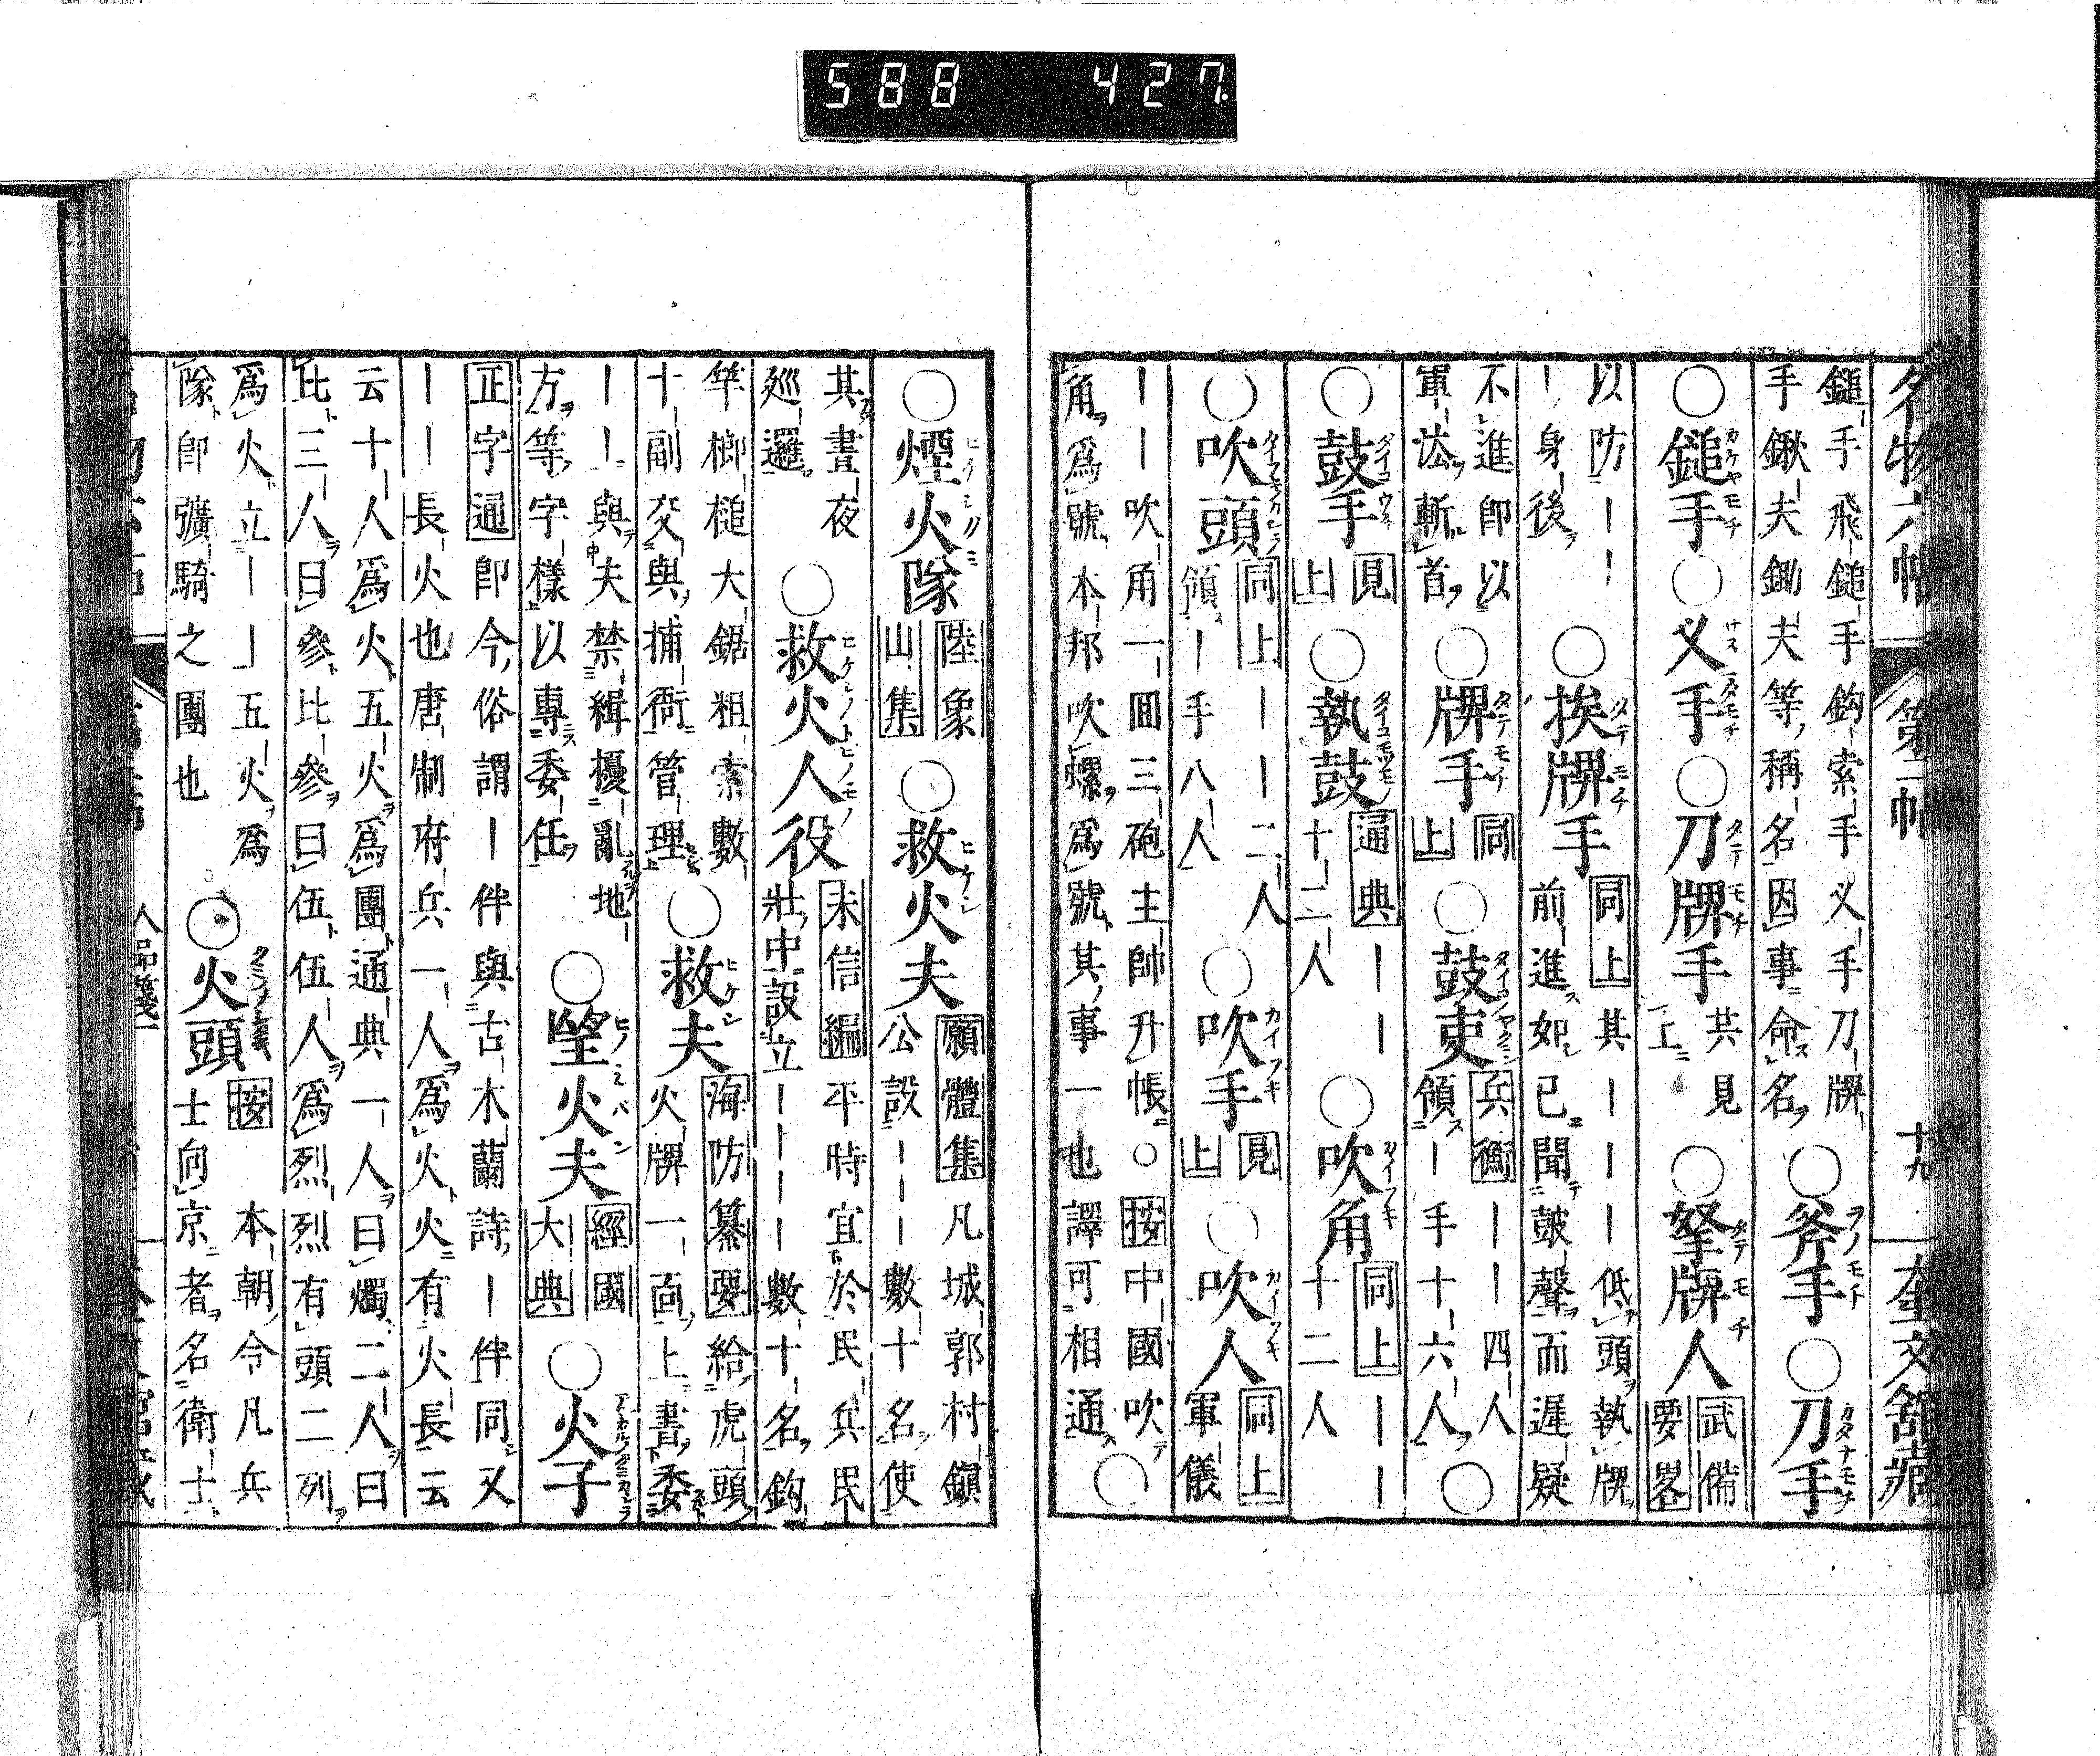 588 427
名物六帖 第二帖 十九 奎文舘藏
鎚手飛鎚手鈎索手义手刀牌
手鍬夫鋤夫等稱名因事命名 ○斧手 ○刀手
○鎚手 ○义手 ○刀牌手 共見上 ○拏牌人 武備要畧
以防｜｜
｜身後 ○挨牌手 同上 其｜｜｜低頭執牌
前進如已聞鼓聲而遲疑
不進即以
軍法斬首 ○牌手 同上 ○鼓吏 兵衡｜｜四人
領｜手十六人 ○
鼓手 見上 ○執鼓 通典｜｜
十二人 ○吹角 同上｜｜
十二人
○吹頭 同上｜｜二人
領｜手八人 ○吹手 見上 ○吹人 同上
軍儀
｜｜吹角一回三砲主帥升帳○按中國吹
角爲號本邦吹螺爲號其事一也譯可相通 ○
○煙火隊 陸象山集 ○救火夫 願體集 凡城郭村鎭
公設｜｜｜數十名使
其晝夜
巡邏 ○救火人役 未信編 平時宜於民兵民
壯中設立｜｜｜｜數十名鈎
竿榔槌大鋸粗索數
十副交與捕衙管理 ○救夫 海防纂要 給虎頭
火牌一面上書委
｜｜與夫禁緝擾亂地
方等字樣以專委任 ○望火夫 經國大典 ○火子
正字通 即今俗謂｜伴與古木蘭詩｜伴同又
｜｜長火也唐制府兵一人爲火火有火長云
云十人爲火五火爲團通典一人曰燭二人曰
比三人曰參比參曰伍伍人爲烈烈有頭二列
爲火立｜」五火爲
隊即彍騎之團也 ○火頭 按 本朝令凡兵
士向京者名衛士
人品箋